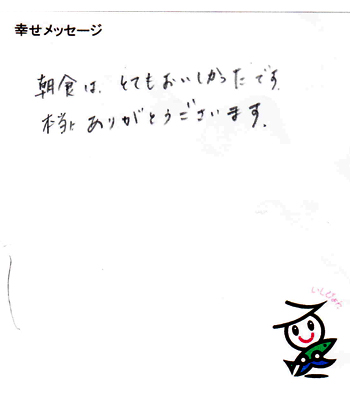 幸せメッセージ
朝食は、とてもおいしかったです。
本当にありがとうございます。